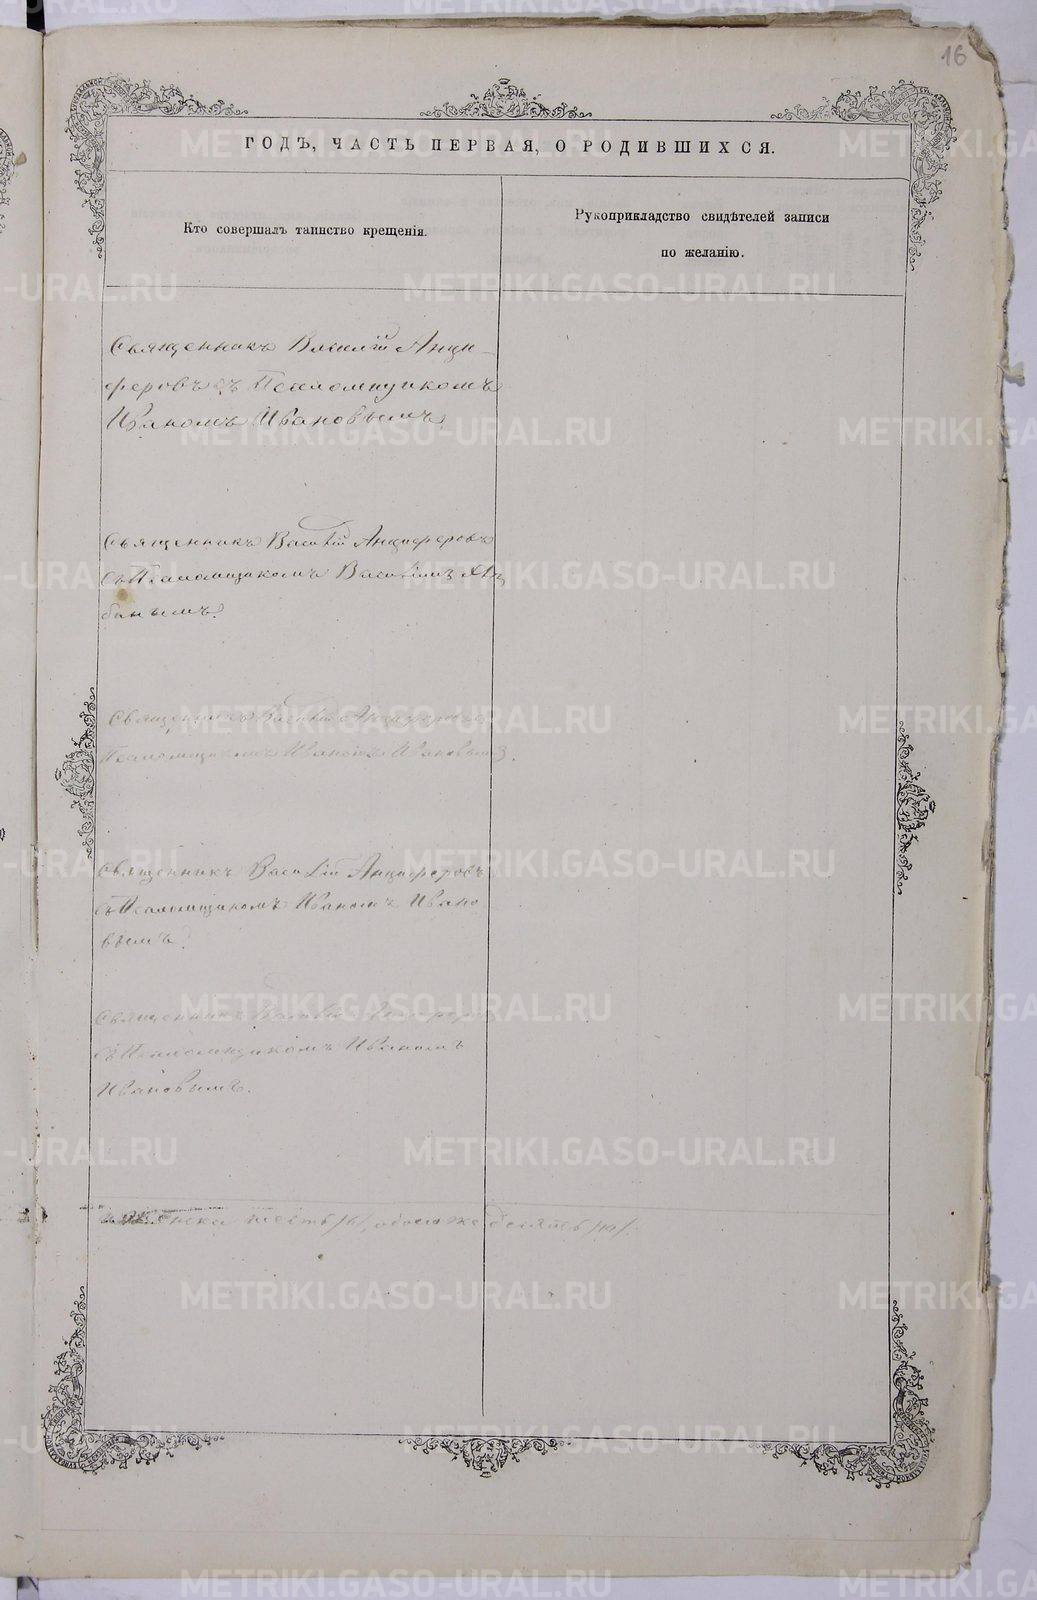 16
ГОДЪ, ЧАСТЬ ПЕРВАЯ, О РОДИВШИХСЯ.
Кто совершалъ таинство крещенія.
Рукоприкладство свидѣтелей записи
по желанію.
Священникъ Василій Анци-
феровъ съ Псаломщикомъ
Иваномъ Ивановымъ.
Священникъ Василій Анциферовъ
съ Псаломщикомъ Василіемъ
банымъ.
Священникъ Василій Анциферовъ съ
Псаломщикомъ Иваномъ Ивановымъ.
Священникъ Василій Анциферовъ
съ Псаломщикомъ Иваномъ Ивано
вымъ.
Священникъ Василій Анциферовъ
съ Псаломщикомъ Иваномъ
Ивановымъ.
женска шесть /6/, обоего же десять /10/.
METRIKI.GASO-URAL.RU